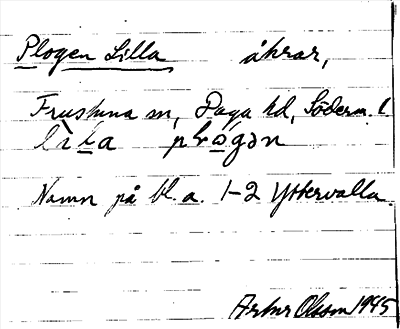 Plogen Lilla åkrar,
Frustuna sn, Daga hd, Söderm. l
lila plògən
Namn på bl.a. 1-2 Yttervalla
Artur Olsson 1945